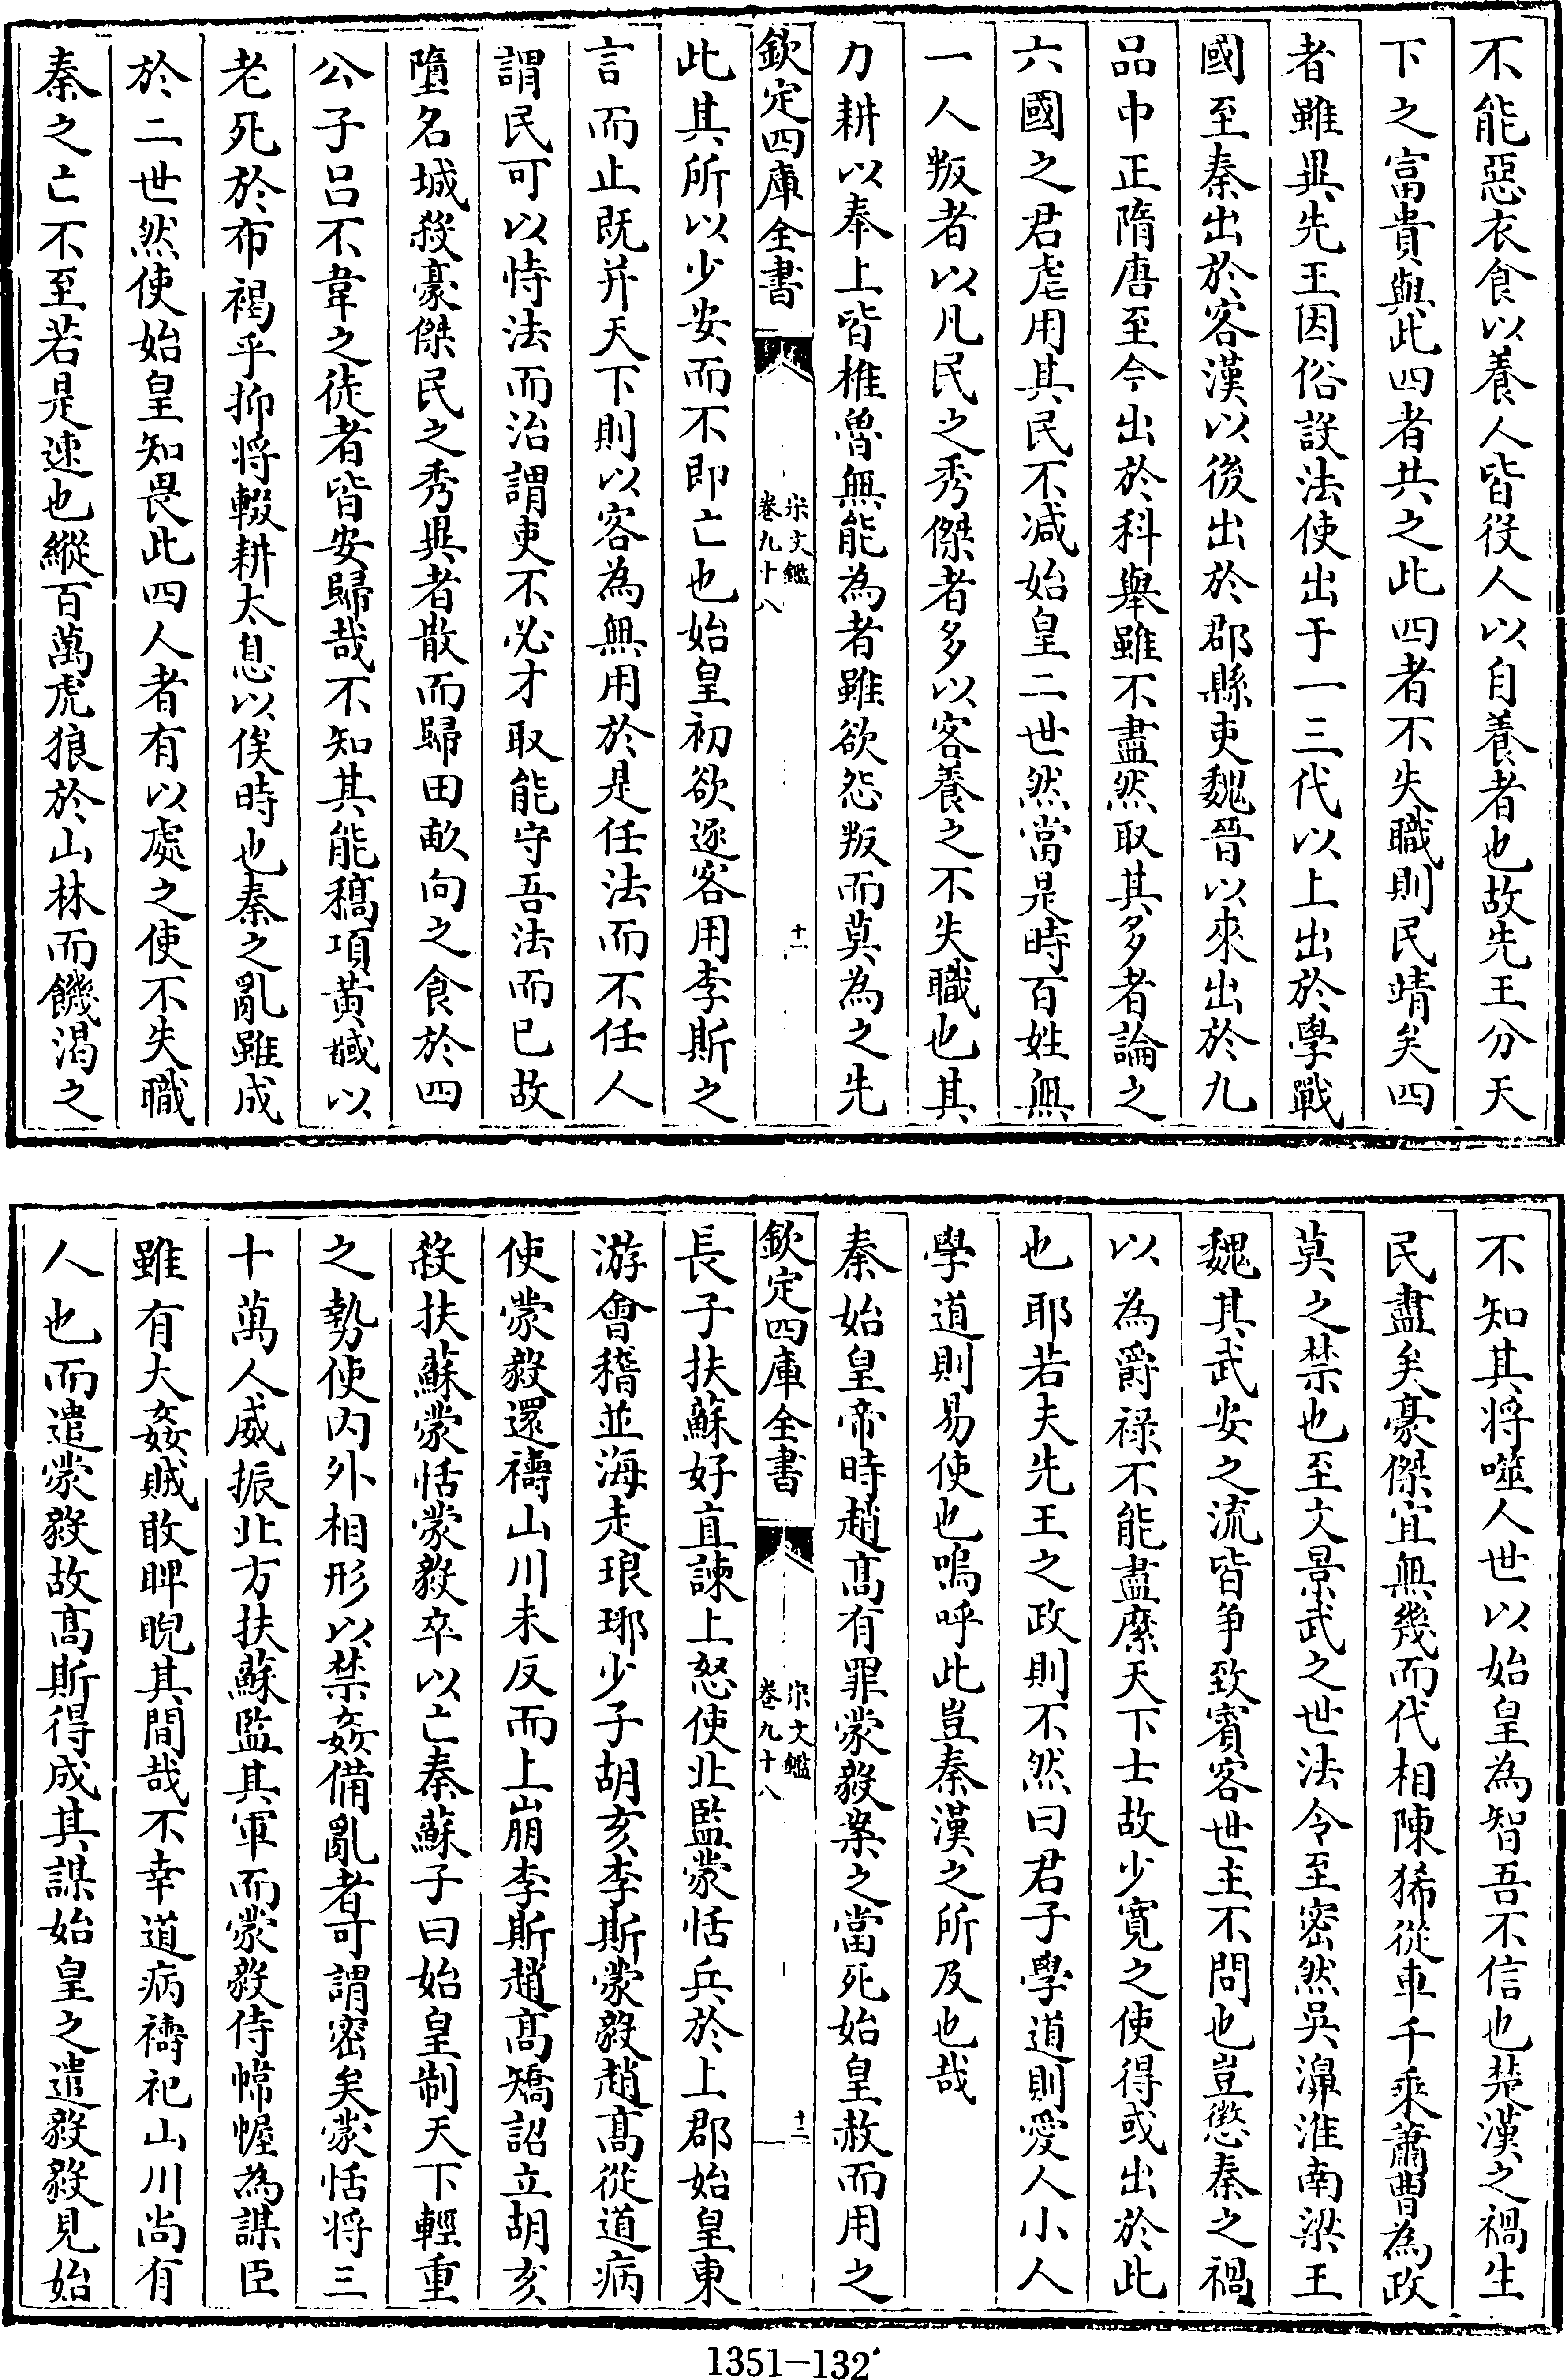 不能惡衣食以養人皆役人以自養者也故先王分天
下之富貴與此四者共之此四者不失職則民靖矣四
者雖異先王因俗設法使出于一三代以上出於學戰
國至秦出於客漢以後出於郡縣吏魏晉以來出於九
品中正隋唐至今出於科舉雖不盡然取其多者論之
六國之君虐用其民不减始皇二世然當是時百姓無
一人叛者以凡民之秀傑者多以客養之不失職也其
力耕以奉上皆椎魯無能為者雖欲怨叛而莫為之先
欽定四庫全書
宋文鑑
卷九十八
十二
此其所以少安而不即亡也始皇初欲逐客用李斯之
言而止既并天下則以客為無用於是任法而不任人
謂民可以恃法而治謂吏不必才取能守吾法而已故
墮名城殺豪傑民之秀異者散而歸田畝向之食於四
公子吕不韋之徒者皆安歸哉不知其能稿項黄馘以
老死於布褐乎抑将輟耕太息以俟時也秦之亂雖成
於二世然使始皇知畏此四人者有以處之使不失職
秦之亡不至若是速也縱百萬虎狼於山林而饑渴之
不知其将噬人世以始皇為智吾不信也楚漢之禍生
民盡矣豪傑宜無幾而代相陳狶從車千乘蕭曹為政
莫之禁也至文景武之世法令至密然吳濞淮南梁王
魏其武安之流皆争致賓客世主不問也豈懲秦之禍
以為爵禄不能盡縻天下士故少寛之使得或出於此
也耶若夫先王之政則不然曰君子學道則愛人小人
學道則易使也嗚呼此豈秦漢之所及也哉
秦始皇帝時趙髙有罪蒙毅案之當死始皇赦而用之
欽定四庫全書
宋文鑑
卷九十八
十三
長子扶蘇好直諫上怒使北監蒙恬兵於上郡始皇東
游會稽並海走琅琊少子胡亥李斯蒙毅趙髙從道病
使蒙毅還禱山川未反而上崩李斯趙髙矯詔立胡亥
殺扶蘇蒙恬蒙毅卒以亡秦蘇子曰始皇制天下輕重
之勢使内外相形以禁姦備亂者可謂密矣蒙恬将三
十萬人威振北方扶蘇監其軍而蒙毅侍幃幄為謀臣
雖有大姦賊敢睥睨其間哉不幸道病禱祀山川尚有
人也而遣蒙毅故髙斯得成其謀始皇之遣毅毅見始
1351-132